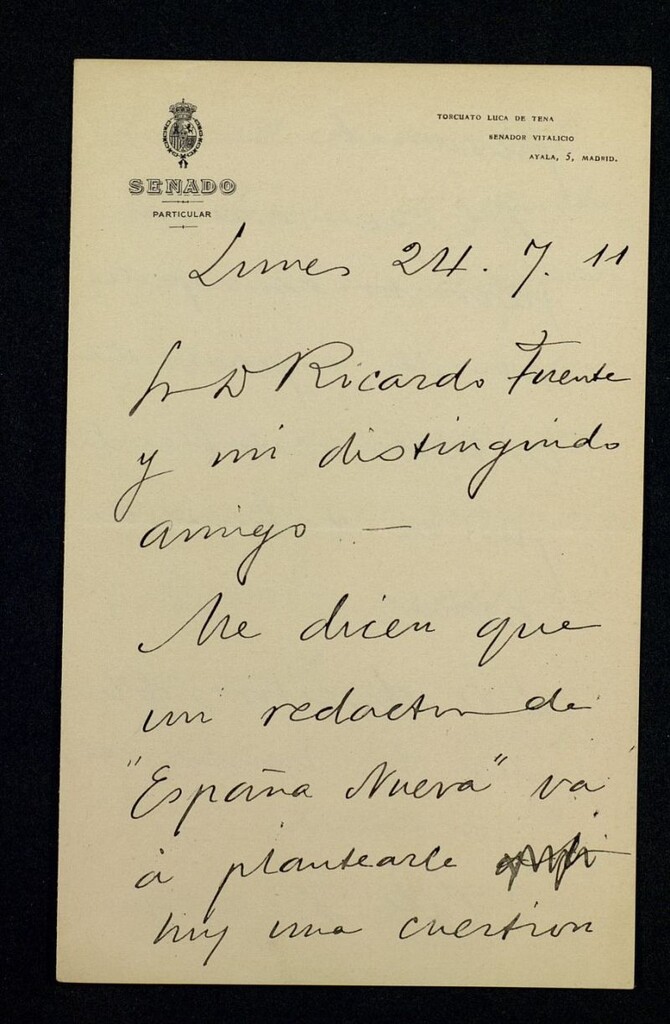 SENADO
PARTICULAR
TORCUATO LUCA DE TENA
SENADOR VITALICIO
AYALA, 5, MADRID.
Lunes 24. 7. 11
Sr D Ricardo Fuente
y mi distinguido
amigo —
Me dicen que
un redactor de
"España Nueva" va
á plantearle
hoy una cuestion